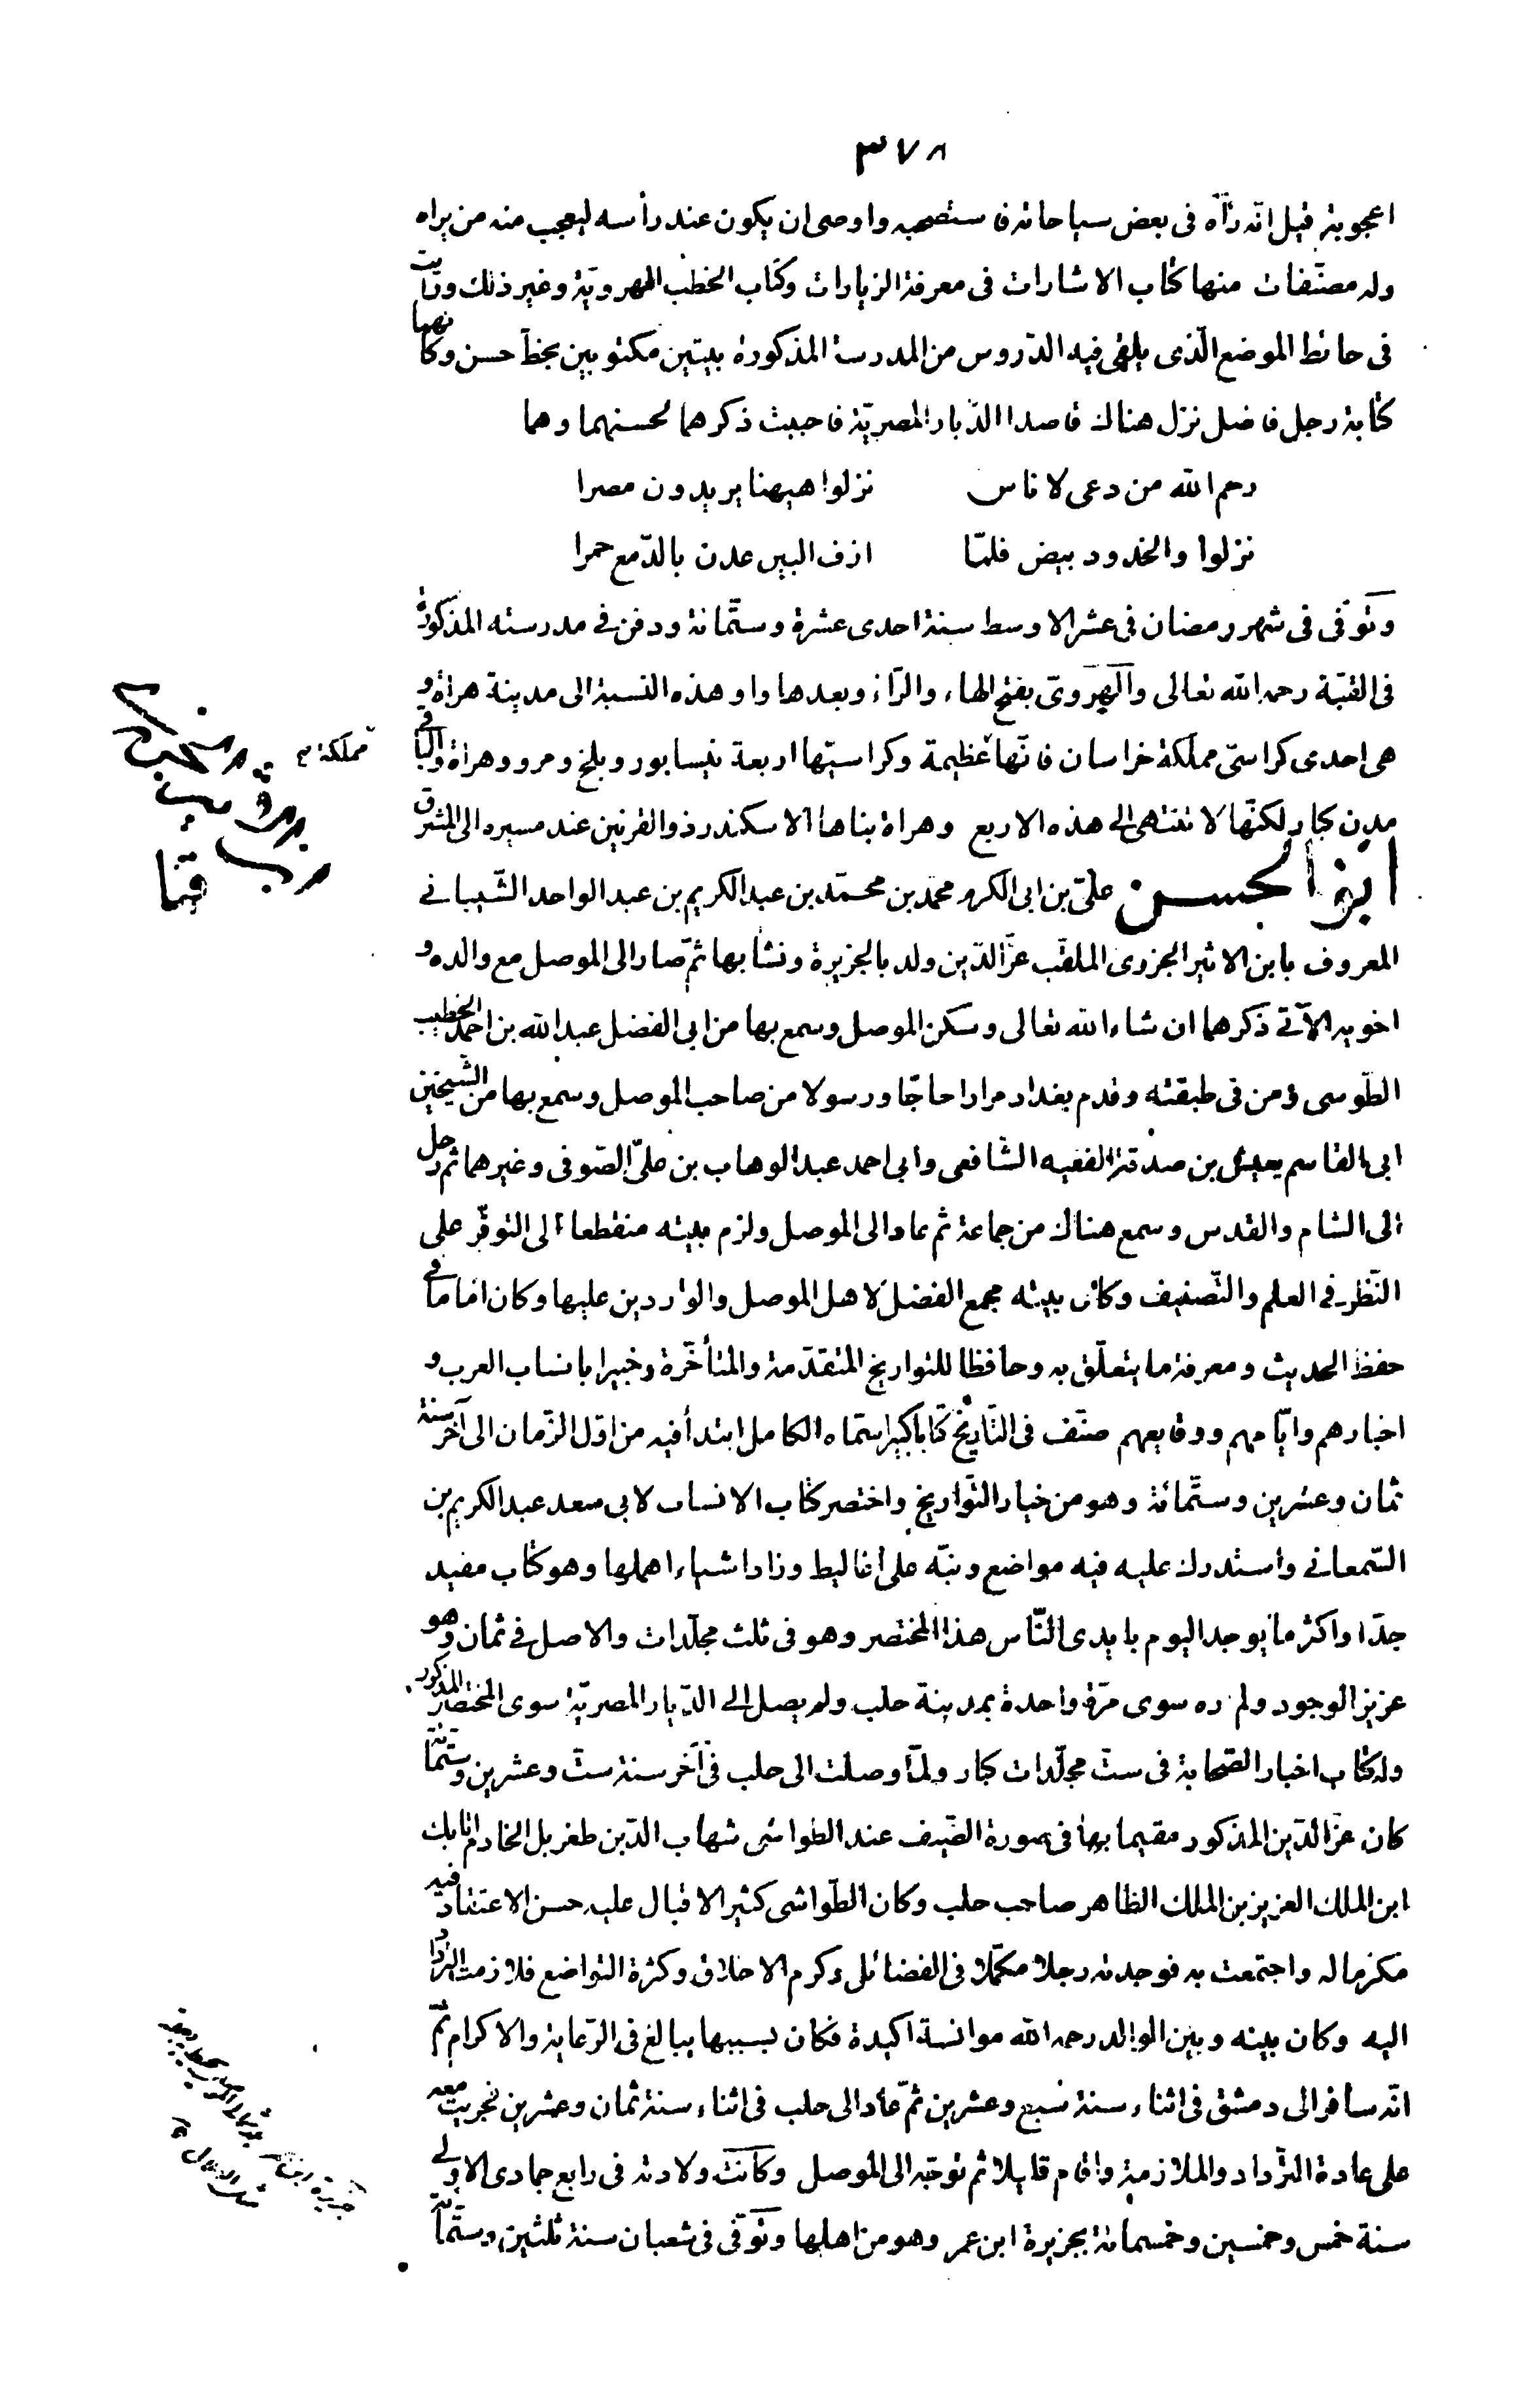 ٣٧٨
اعجوبة قيل انّه رآه فى بعض سياحاته فاستصحبه واوصى ان يكون عند رأسه ليعجب منه من يراه
وله مصنّفات منها كتاب الاشارات فى معرفة الزيارات وكتاب الخطب الهرويّة وغير ذلك ورأيت
فى حائط الموضع الّذى يلقى فيه الدّروس من المدرسة المذكورة بيتين مكتوبين بخطّ حسن وكانهما
كتابة رجل فاضل نزل هناك قاصدا الدّيار المصريّة فاحببت ذكرهما لحسنهما وهما
رحم الله من دعى لاناس نزلوا هيهنا يريدون مصرا
نزلوا والخدود بيض فلمّا ازف البين عدن بالدّمع حمرا
وتوفّى فى شهر رمضان فى عشر الاوسط سنة احدى عشرة وستّمائة ودفن فى مدرسته المذكورة
فى القبّة رحمه الله تعالى والهروىّ بفتح الهاء والرّاء وبعدها واو هذه النسبة الى مدينة هراة و
هى احدى كراسىّ مملكة خراسان فانّها عظيمة وكراسيّها اربعة نيسابور وبلخ ومرو وهراة والباقى
مدن كبار لكنّها لا تنتهى الى هذه الاربع وهراة بناها الاسكندر ذو القرنين عند مسيره الى المشرق
ابو الحسن علىّ بن ابى الكرم محمّد بن محمّد بن عبد الكريم بن عبد الواحد الشّيبانى
المعروف بابن الاثير الجزرى الملقّب عزّ الدّين ولد بالجزيرة ونشأ بها ثمّ صار الى الموصل مع والده و
اخويه الآتى ذكرهما ان شاء الله تعالى وسكن الموصل وسمع بها من ابى الفضل عبد الله بن احمد الخطيب
الطّوسى ومن فى طبقته وقدم بغداد مرارا حاجّا ورسولا من صاحب الموصل وسمع بها من الشّيخين
ابى القاسم يعيش بن صدقة الفقيه الشّافعى وابى احمد عبد الوهاب بن علىّ الصّوفى وغيرهما ثم رحل
الى الشام والقدس وسمع هناك من جماعة ثم عاد الى الموصل ولزم بيته منقطعا الى التوفّر على
النّظر فى العلم والتّصنيف وكان بيته مجمع الفضل لاهل الموصل والواردين عليها وكان اماما فى
حفظ الحديث ومعرفة ما يتعلّق به وحافظا للتواريخ المتقدّمة والمتأخّرة وخبيرا بانساب العرب و
اخبارهم وايّامهم ووقايعهم صنّف فى التّاريخ كتابا كبيرا سمّاه الكامل ابتدأ فيه من اوّل الزّمان الى آخر سنة
ثمان وعشرين وستّمائة وهو من خيار التّواريخ واختصر كتاب الانساب لابى سعد عبد الكريم بن
السّمعانى واستدرك عليه فيه مواضع ونبّه على اغاليط وزاد اشياء اهملها وهو كتاب مفيد
جدّا واكثر ما يوجد اليوم بايدى النّاس هذا المختصر وهو فى ثلث مجلّدات والاصل فى ثمان وهو
عزيز الوجود ولم ره سوى مرّة واحدة بمدينة حلب ولم يصل الى الدّيار المصريّة سوى المختصر المذكور
وله كتاب اخبار الصّحابة فى ستّ مجلّدات كبار ولمّا وصلت الى حلب فى آخر سنة ستّ وعشرين وستّمائة
كان عزّ الدّين المذكور مقيما بها فى صورة الضّيف عند الطواشى شهاب الدّين طغريل الخادم اتابك
ابن الملك العزيز بن الملك الظاهر صاحب حلب وكان الطّواشى كثير الاقبال عليه حسن الاعتقاد فيه
مكرما له واجتمعت به فوجدته رجلا مكمّلا فى الفضائل وكرم الاخلاق وكثرة التواضع فلازمت التّرداد
اليه وكان بينه وبين الوالد رحمه الله موانسة اكيدة فكان بسببها يبالغ فى الرّعاية والاكرام ثمّ
انّه سافر الى دمشق فى اثناء سنة سبع وعشرين ثمّ عاد الى حلب فى اثناء سنة ثمان وعشرين فجريت معه
على عادة التّرداد والملازمة واقام قليلا ثم توجّه الى الموصل وكانت ولادته فى رابع جمادى الاولى
سنة خمس وخمسين وخمسمائة بجزيرة ابن عمر وهو من اهلها وتوفّى فى شعبان سنة ثلثين وستّمائة
مملكة